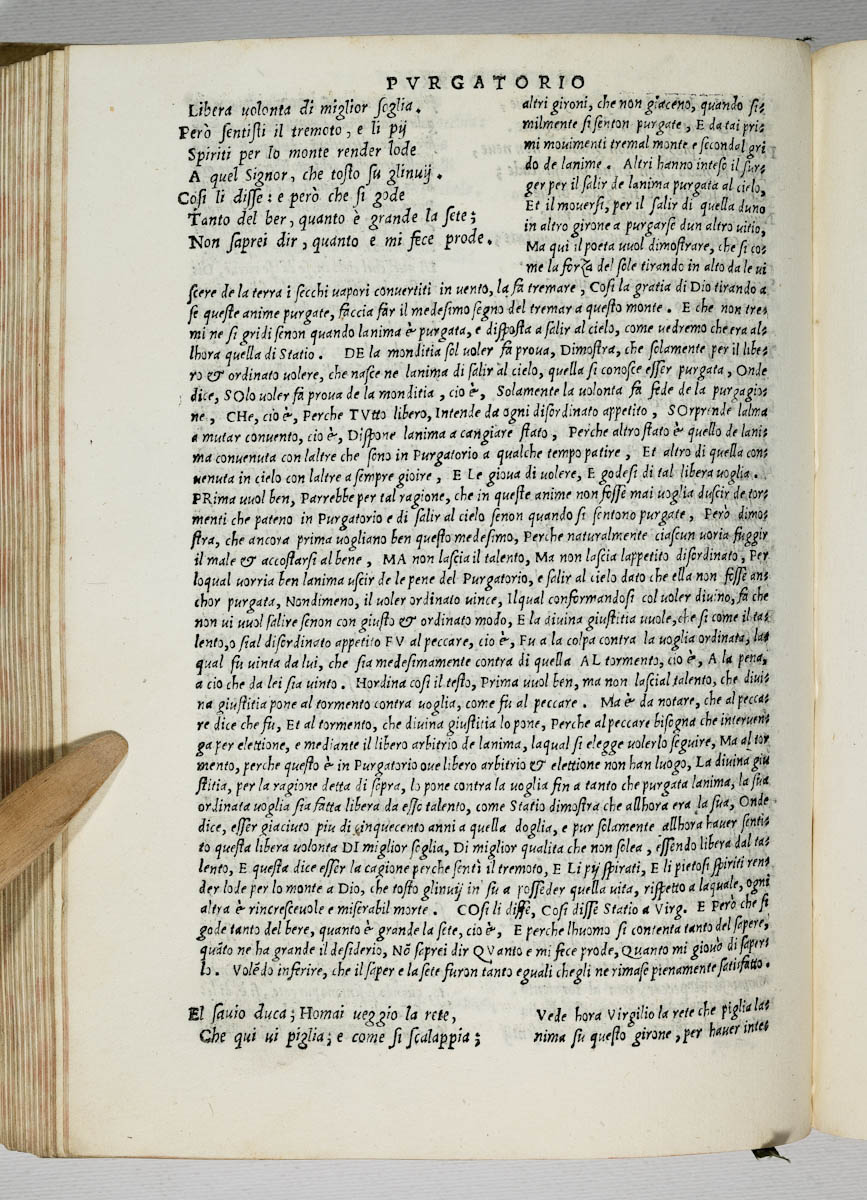 PVRGATORIO
Libera uolonta di miglior soglia.
Però sentisti il tremoto, e li pij
Spiriti per lo monte render lode
A quel Signor, che tosto su glinuij.
Cosi li disse: e però che si gode
Tanto del ber, quanto è grande la sete;
Non saprei dir, quanto e mi fece prode.
altri gironi, che non giaceno, quando si-
milmente si senton purgate, E da tai pri-
mi mouimenti tremal monte e secondal gri
do de lanime. Altri hanno inteso il sur-
ger per il salir de lanima purgata al cielo,
Et il mouersi, per il salir di quella duno
in altro girone a purgarse dun altro uitio,
Ma qui il poeta uuol dimostrare, che si co-
me la forza del sole tirando in alto da le ui
scere de la terra i secchi uapori conuertiti in uento, la fa tremare, Cosi la gratia di Dio tirando a
se queste anime purgate, faccia far il medesimo segno del tremar a questo monte. E che non tre-
mi ne si gridi senon quando lanima è purgata, e disposta a salir al cielo, come uedremo che era al-
lhora quella di Statio. DE la monditia sol uoler fa proua, Dimostra, che solamente per il libe-
ro & ordinato uolere, che nasce ne lanima di salir al cielo, quella si conosce esser purgata, Onde
dice, SOlo uoler fa proua de la monditia, cio è, Solamente la uolonta fa fede de la purgagio-
ne, CHe, cio è, Perche TVtto libero, Intende da ogni disordinato appetito, SOrprende lalma
a mutar conuento, cio è, Dispone lanima a cangiare stato, Perche altro stato è quello de lani-
ma conuenuta con laltre che sono in Purgatorio a qualche tempo patire, Et altro di quella con-
uenuta in cielo con laltre a sempre gioire, E Le gioua di uolere, E godesi di tal libera uoglia.
PRima uuol ben, Parrebbe per tal ragione, che in queste anime non fosse mai uoglia duscir de tor-
menti che pateno in Purgatorio e di salir al cielo senon quando si sentono purgate, Però dimo-
stra, che ancora prima uogliano ben questo medesimo, Perche naturalmente ciascun uoria fuggir
il male & accostarsi al bene, MA non lascia il talento, Ma non lascia lappetito disordinato, Per
loqual uorria ben lanima uscir de le pene del Purgatorio, e salir al cielo dato che ella non fosse an-
chor purgata, Nondimeno, il uoler ordinato uince, Ilqual conformandosi col uoler diuino, fa che
non ui uuol salire senon con giusto & ordinato modo, E la diuina giustitia uuole, che si come il ta-
lento, o sial disordinato appetito FV al peccare, cio è, Fu a la colpa contra la uoglia ordinata, la-
qual fu uinta da lui, che sia medesimamente contra di quella AL tormento, cio è, A la pena,
a cio che da lei sia uinto. Hordina cosi il testo, Prima uuol ben, ma non lascial talento, che diui-
na giustitia pone al tormento contra uoglia, come fu al peccare. Ma è da notare, che al pecca-
re dice che fu, Et al tormento, che diuina giustitia lo pone, Perche al peccare bisogna che interuen-
ga per elettione, e mediante il libero arbitrio de lanima, laqual si elegge uolerlo seguire, Ma al tor
mento, perche questo è in Purgatorio oue libero arbitrio & elettione non han luogo, La diuina giu
stitia, per la ragione detta di sopra, lo pone contra la uoglia fin a tanto che purgata lanima, la sua
ordinata uoglia sia fatta libera da esso talento, come Statio dimostra che allhora era la sua, Onde
dice, esser giaciuto piu di cinquecento anni a quella doglia, e pur solamente allhora hauer senti-
to questa libera uolonta DI miglior soglia, Di miglior qualita che non solea, essendo libera dal ta-
lento, E questa dice esser la cagione perche sentì il tremoto, E LI pij spirati, E li pietosi spiriti ren-
der lode per lo monte a Dio, che tosto glinuij in su a posseder quella uita, rispetto a laquale, ogni
altra è rincresceuole e miserabil morte. COsi li disse, Cosi disse Statio a Virg. E Però che si
gode tanto del bere, quanto è grande la sete, cio è, E perche lhuomo si contenta tanto del sapere,
quãto ne ha grande il desiderio, Nõ saprei dir QVanto e mi fece prode, Quanto mi giouò di saper-
lo. Volẽdo inferire, che il saper e la sete furon tanto eguali chegli ne rimase pienamente satisfatto.
El sauio duca; Homai ueggio la rete,
Che qui ui piglia; e come si scalappia;
Vede hora Virgilio la rete che piglia la-
nima su questo girone, per hauer inte-